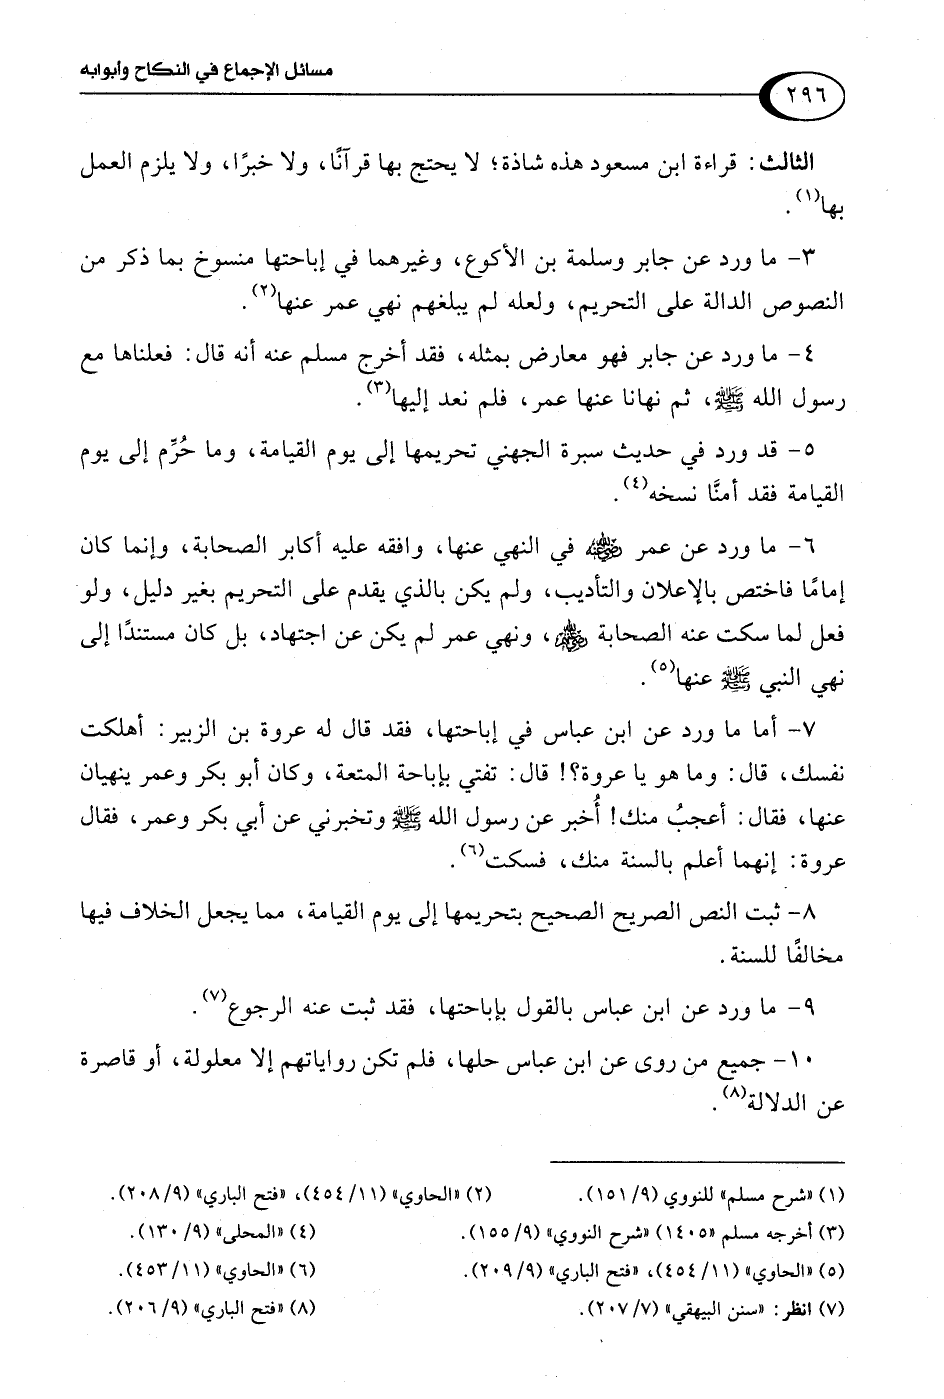 مسائل الإجماع في النكاح وأبوابه
٢٩٦
الثالث: قراءة ابن مسعود هذه شاذة؛ لا يحتج بها قرآنًا، ولا خبرًا، ولا يلزم العمل
بها(١).
٣- ما ورد عن جابر وسلمة بن الأكوع، وغيرهما في إباحتها منسوخ بما ذكر من
النصوص الدالة على التحريم، ولعله لم يبلغهم نهي عمر عنها(٢).
٤- ما ورد عن جابر فهو معارض بمثله، فقد أخرج مسلم عنه أنه قال: فعلناها مع
رسول الله ﷺ، ثم نهانا عنها عمر، فلم نعد إليها(٣).
٥- قد ورد في حديث سبرة الجهني تحريمها إلى يوم القيامة، وما حُرِّم إلى يوم
القيامة فقد أمنَّا نسخه(٤).
٦- ما ورد عن عمر رضي الله عنه في النهي عنها، وافقه عليه أكابر الصحابة، وإنما كان
إمامًا فاختص بالإعلان والتأديب، ولم يكن بالذي يقدم على التحريم بغير دليل، ولو
فعل لما سكت عنه الصحابة رضي الله عنهم، ونهي عمر لم يكن عن اجتهاد، بل كان مستندًا إلى
نهي النبي ﷺ عنها(٥).
٧- أما ما ورد عن ابن عباس في إباحتها، فقد قال له عروة بن الزبير: أهلكت
نفسك، قال: وما هو يا عروة؟! قال: تفتي بإباحة المتعة، وكان أبو بكر وعمر ينهيان
عنها، فقال: أعجبُ منك! أُخبر عن رسول الله ﷺ وتخبرني عن أبي بكر وعمر، فقال
عروة: إنهما أعلم بالسنة منك، فسكت(٦).
٨- ثبت النص الصريح الصحيح بتحريمها إلى يوم القيامة، مما يجعل الخلاف فيها
مخالفًا للسنة.
٩- ما ورد عن ابن عباس بالقول بإباحتها، فقد ثبت عنه الرجوع(٧).
١٠- جميع من روى عن ابن عباس حلها، فلم تكن رواياتهم إلا معلولة، أو قاصرة
عن الدلالة(٨).
(١) «شرح مسلم» للنووي (٩/ ١٥١). (٢) «الحاوي» (١١/ ٤٥٤)، «فتح الباري» (٩/ ٢٠٨).
(٣) أخرجه مسلم «١٤٠٥) «شرح النووي» (٩/ ١٥٥). (٤) «المحلى» (٩/ ١٣٠).
(٥) «الحاوي» (١١/ ٤٥٤)، «فتح الباري» (٩/ ٢٠٩). (٦) «الحاوي» (١١/ ٤٥٣).
(٧) انظر: «سنن البيهقي» (٧/ ٢٠٧). (٨) «فتح الباري» (٩/ ٢٠٦).